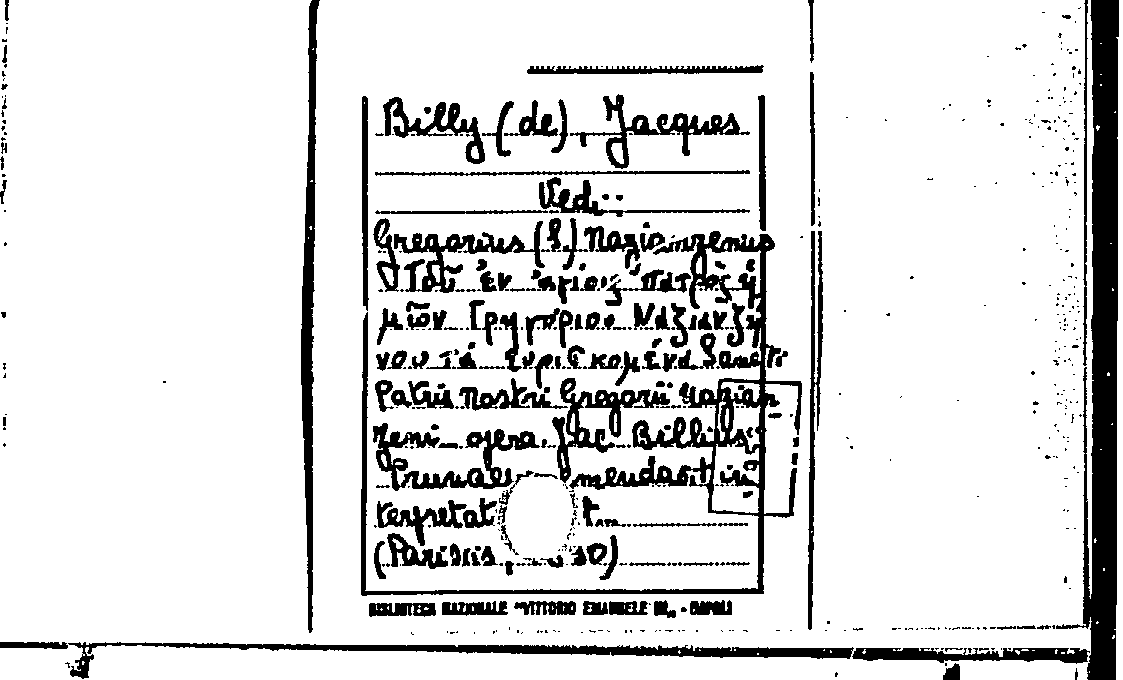 Billy (de), Jacques
Vedi:
Gregorius (S.) Nazianzenus
Τοῦ ἐν ἁγίοις πατρὸς ἡ
μῶν Γρηγόριου Ναζιανζη
νου τὰ ευρισκομένα Sancti
Patris nostri Gregorii Nazian
zeni opera. Jac. Billius
Prunae mendavit in
terpretat t..
(Parisiis, 30)
BIBLIOTECA NAZIONALE "VITTORIO EMANUELE III" - NAPOLI